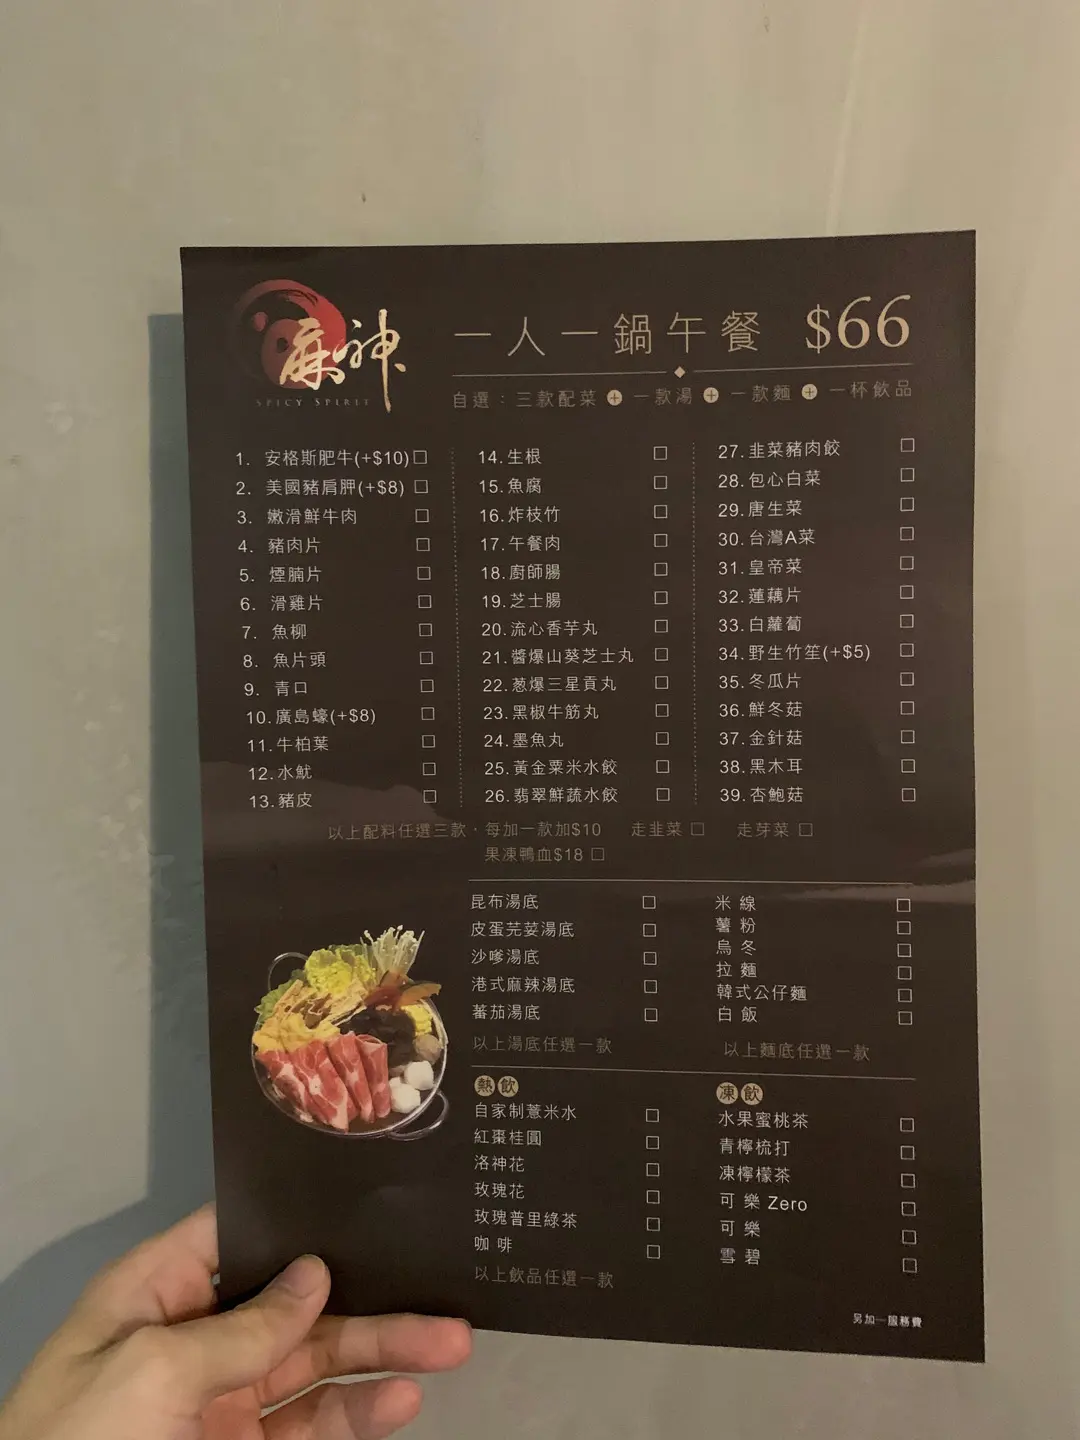 麻神
SPICY SPIRIT
一人一鍋午餐 $66
自選：三款配菜 + 一款湯 + 一款麵 + 一杯飲品
1. 安格斯肥牛(+$10) □
2. 美國豬肩胛(+$8) □
3. 嫩滑鮮牛肉 □
4. 豬肉片 □
5. 煙腩片 □
6. 滑雞片 □
7. 魚柳 □
8. 魚片頭 □
9. 青口 □
10. 廣島蠔(+$8) □
11. 牛柏葉 □
12. 水魷 □
13. 豬皮 □
14. 生根 □
15. 魚腐 □
16. 炸枝竹 □
17. 午餐肉 □
18. 廚師腸 □
19. 芝士腸 □
20. 流心香芋丸 □
21. 醬爆山葵芝士丸 □
22. 葱爆三星貢丸 □
23. 黑椒牛筋丸 □
24. 墨魚丸 □
25. 黃金粟米水餃 □
26. 翡翠鮮蔬水餃 □
27. 韭菜豬肉餃 □
28. 包心白菜 □
29. 唐生菜 □
30. 台灣A菜 □
31. 皇帝菜 □
32. 蓮藕片 □
33. 白蘿蔔 □
34. 野生竹笙(+$5) □
35. 冬瓜片 □
36. 鮮冬菇 □
37. 金針菇 □
38. 黑木耳 □
39. 杏鮑菇 □
以上配料任選三款，每加一款加$10 走韭菜 □ 走芽菜 □
果凍鴨血$18 □
昆布湯底 □
皮蛋芫荽湯底 □
沙嗲湯底 □
港式麻辣湯底 □
蕃茄湯底 □
以上湯底任選一款
米線 □
薯粉 □
烏冬 □
拉麵 □
韓式公仔麵 □
白飯 □
以上麵底任選一款
熱飲
自家制薏米水 □
紅棗桂圓 □
洛神花 □
玫瑰花 □
玫瑰普里綠茶 □
咖啡 □
以上飲品任選一款
凍飲
水果蜜桃茶 □
青檸梳打 □
凍檸檬茶 □
可樂 Zero □
可樂 □
雪碧 □
另加一服務費